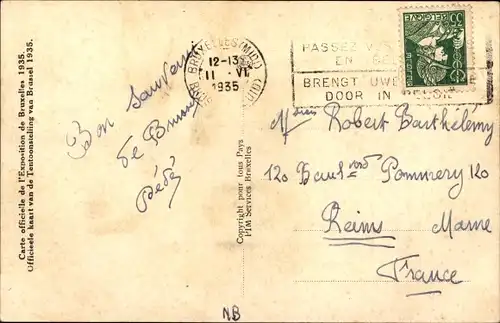 Carte officielle de l'Exposition de Bruxelles 1935.
Officieele kaart van de Tentoonstelling van Brussel 1935.
Bon souvenir
de Bruxelles
Dédé
Copyright pour tous Pays
PIM Services Bruxelles
BRUXELLES (MIDI)
12-13
11 VI
1935
BRUSSEL (ZUID)
PASSEZ
EN BEL
BRENGT UWE
DOOR IN BELGIE
BELGIQUE
35
Robert Barthélémy
120 Boulvard Pommery 120
Reims Marne
France
NB